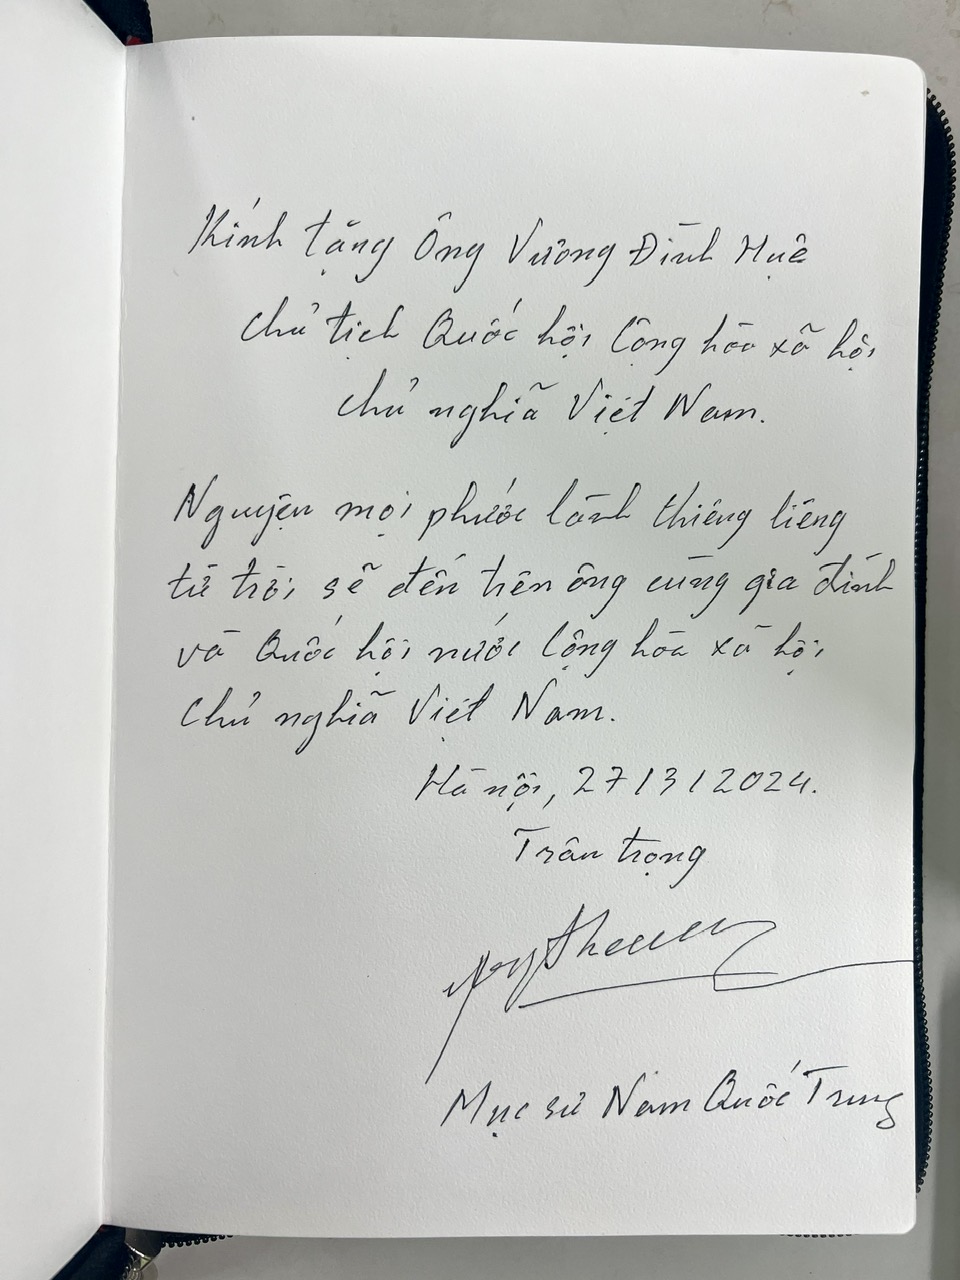 Kính tặng Ông Vương Đình Huệ
Chủ tịch Quốc hội Cộng hòa xã hội
chủ nghĩa Việt Nam.
Nguyện mọi phước lành thiêng liêng
từ trời sẽ đến trên ông cùng gia đình
và Quốc hội nước Cộng hòa xã hội
Chủ nghĩa Việt Nam.
Hà nội, 27/3/2024.
Trân trọng
Mục sư Nam Quốc Trung